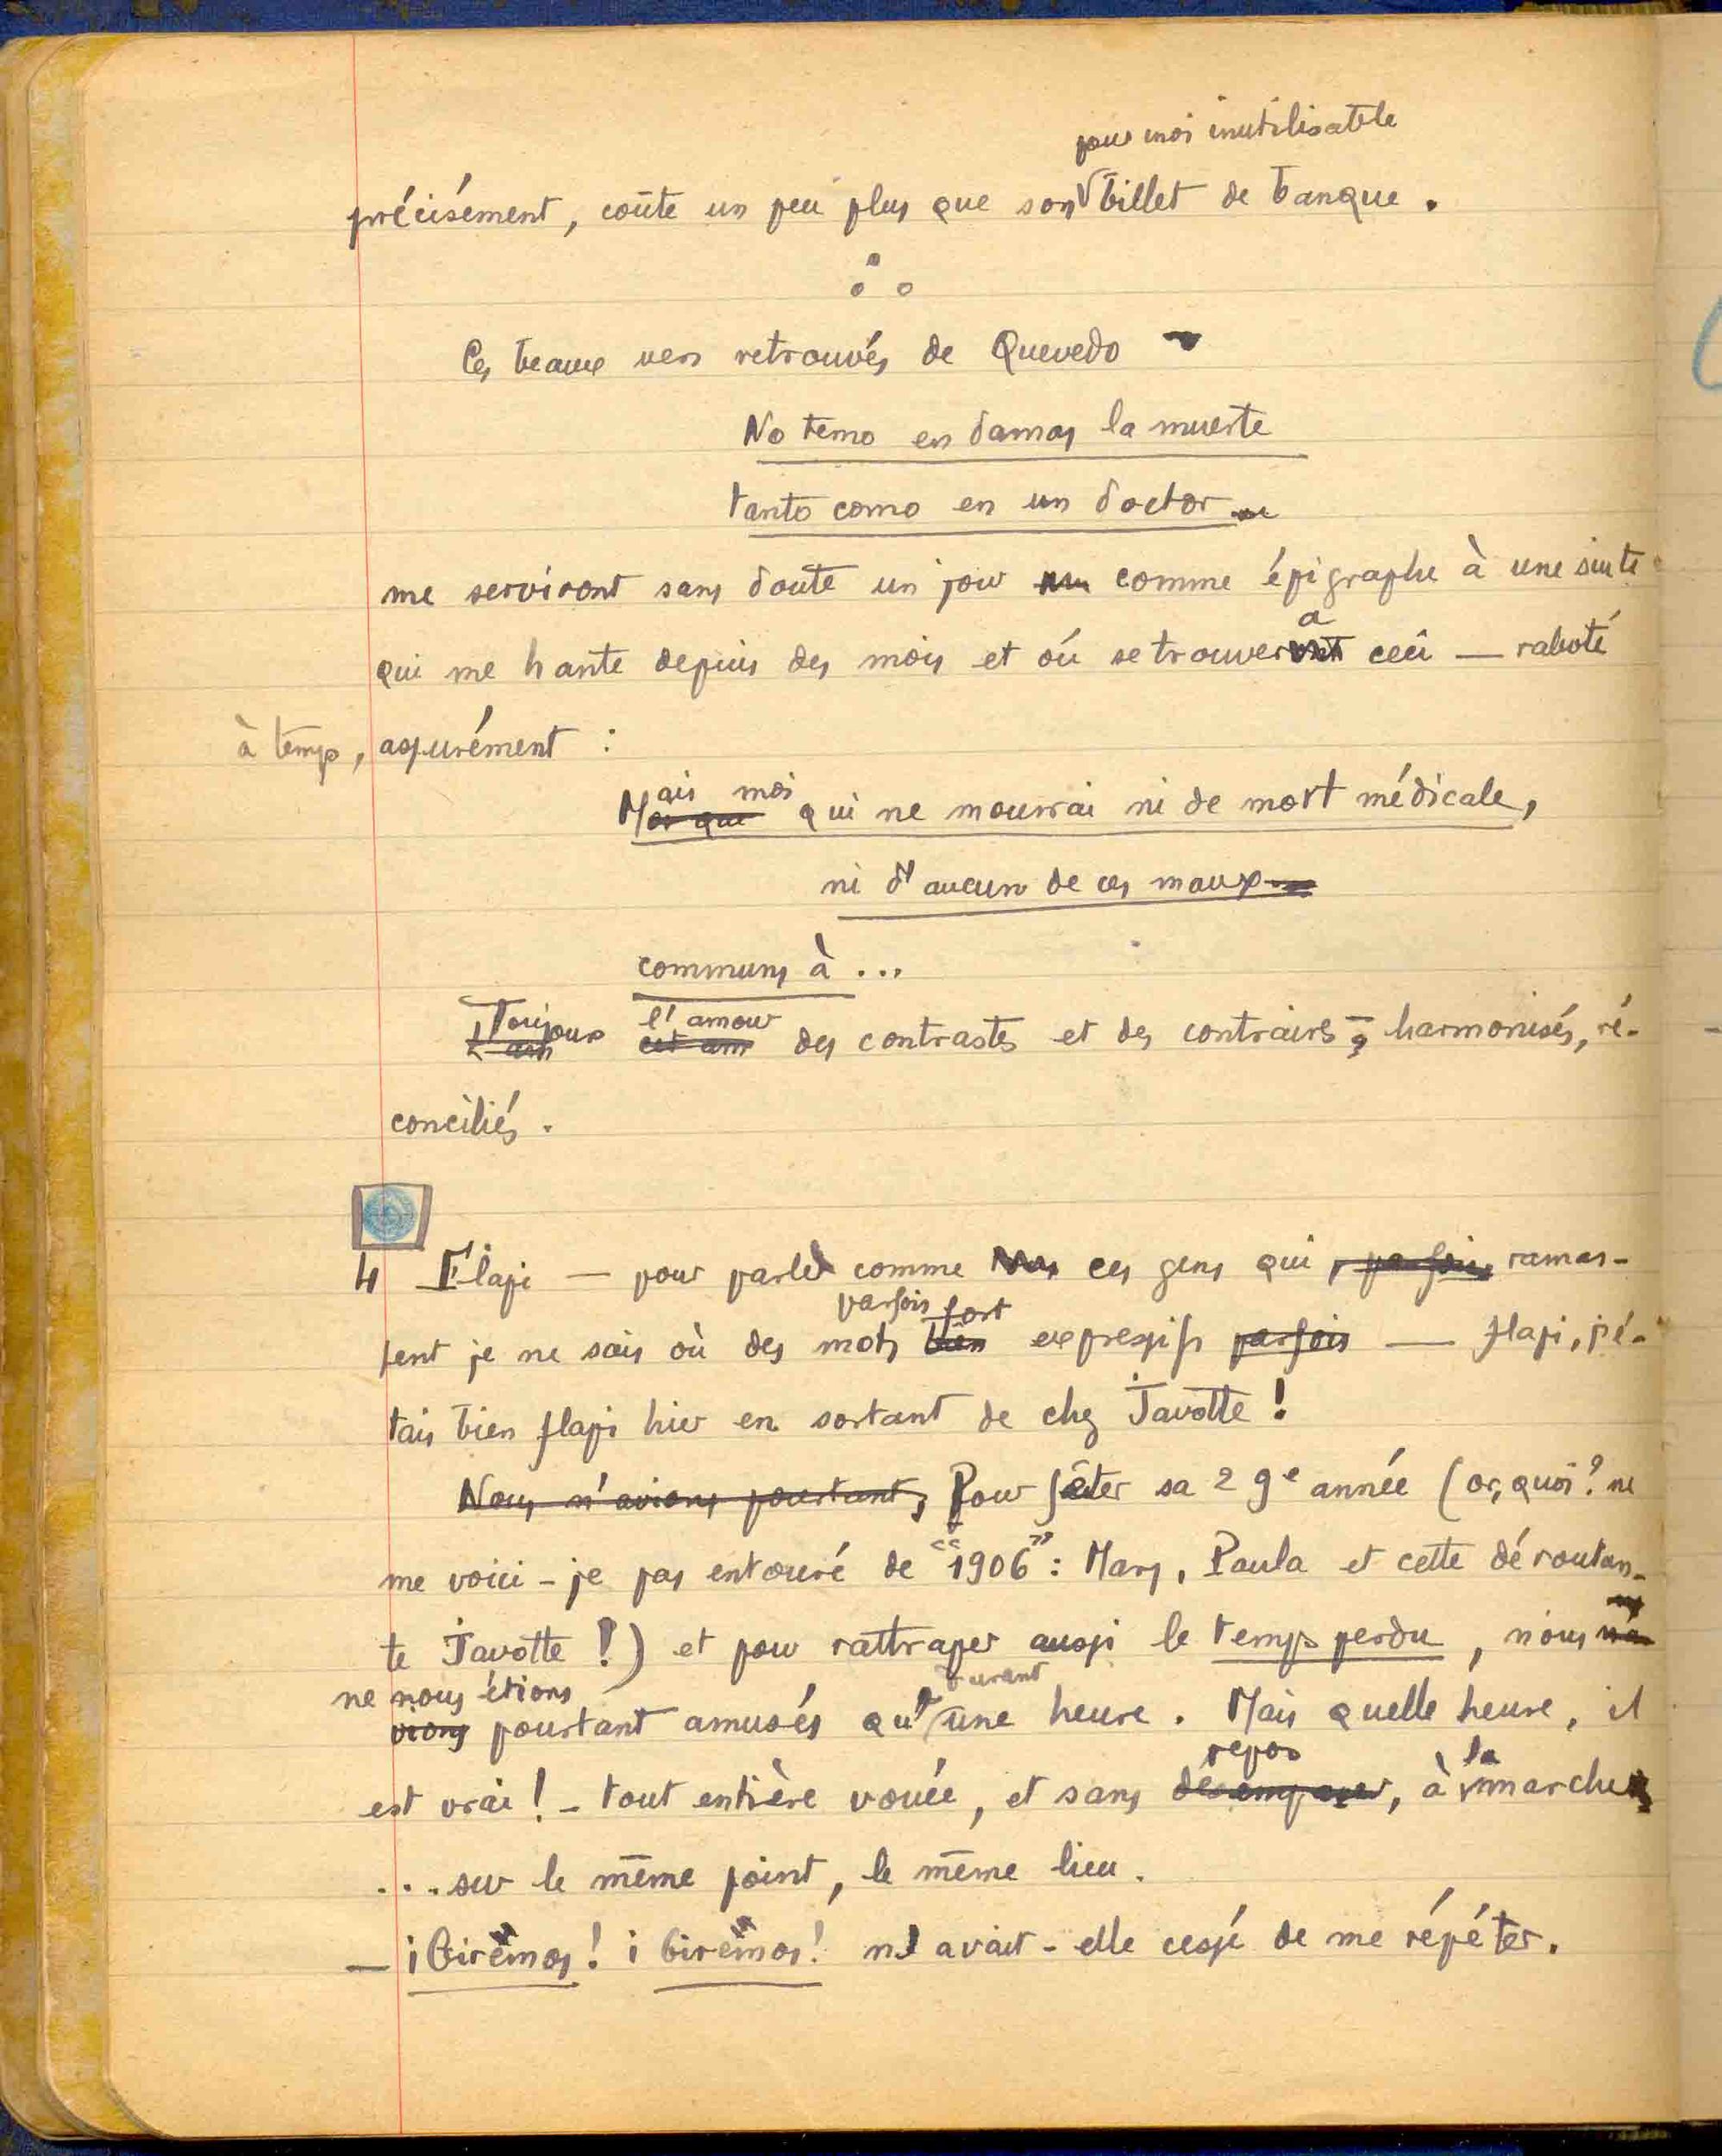 pour moi inutilisable
précisément, coûte un peu plus que son billet de banque.
Ces beaux vers retrouvés de Quevedo
No temo en damas la muerte
tanto como en un doctor
me serviront sans doute un jour comme épigraphe à une suite
a
qui me hante depuis des mois et où se trouveront ceci — raboté
à temps, assurément :
ais moi
Mor que qui ne mourrai ni de mort médicale,
ni d'aucun de ces maux
communs à ...
Toujours l'amour
cet am des contrastes et des contraires, harmonisés, ré-
conciliés.
4 Flapi — pour parler comme ces gens qui, parfois, ramas-
parfois fort
sent je ne sais où des mots bien expressifs parfois — flapi, j'é-
tais bien flapi hier en sortant de chez Javotte !
Nous n'avions pourtant, Pour fêter sa 29e année (or, quoi ? ne
me voici-je pas entouré de "1906" : Mary, Paula et cette déroutan-
te Javotte !) et pour rattraper aussi le temps perdu, nous n'a
ne nous étions durant
vions pourtant amusés qu'une heure. Mais quelle heure, il
repos la
est vrai ! - tout entière vouée, et sans désemparer, à marche
.... sur le même point, le même lieu.
— ¡Giremos! ¡Giremos! n'avait-elle cessé de me répéter.